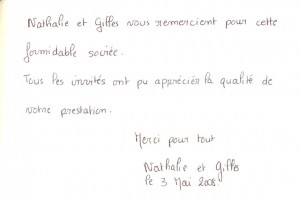 Nathalie et Gilles vous remercient pour cette
formidable soirée.
Tous les invités ont pu apprécier la qualité de
votre prestation.
Merci pour tout
Nathalie et Gilles
le 3 Mai 2008